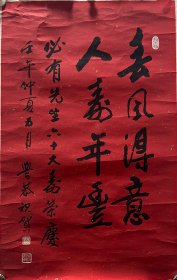 春风得意
人寿年丰
必有先生六十大寿荣庆
壬午仲夏五月